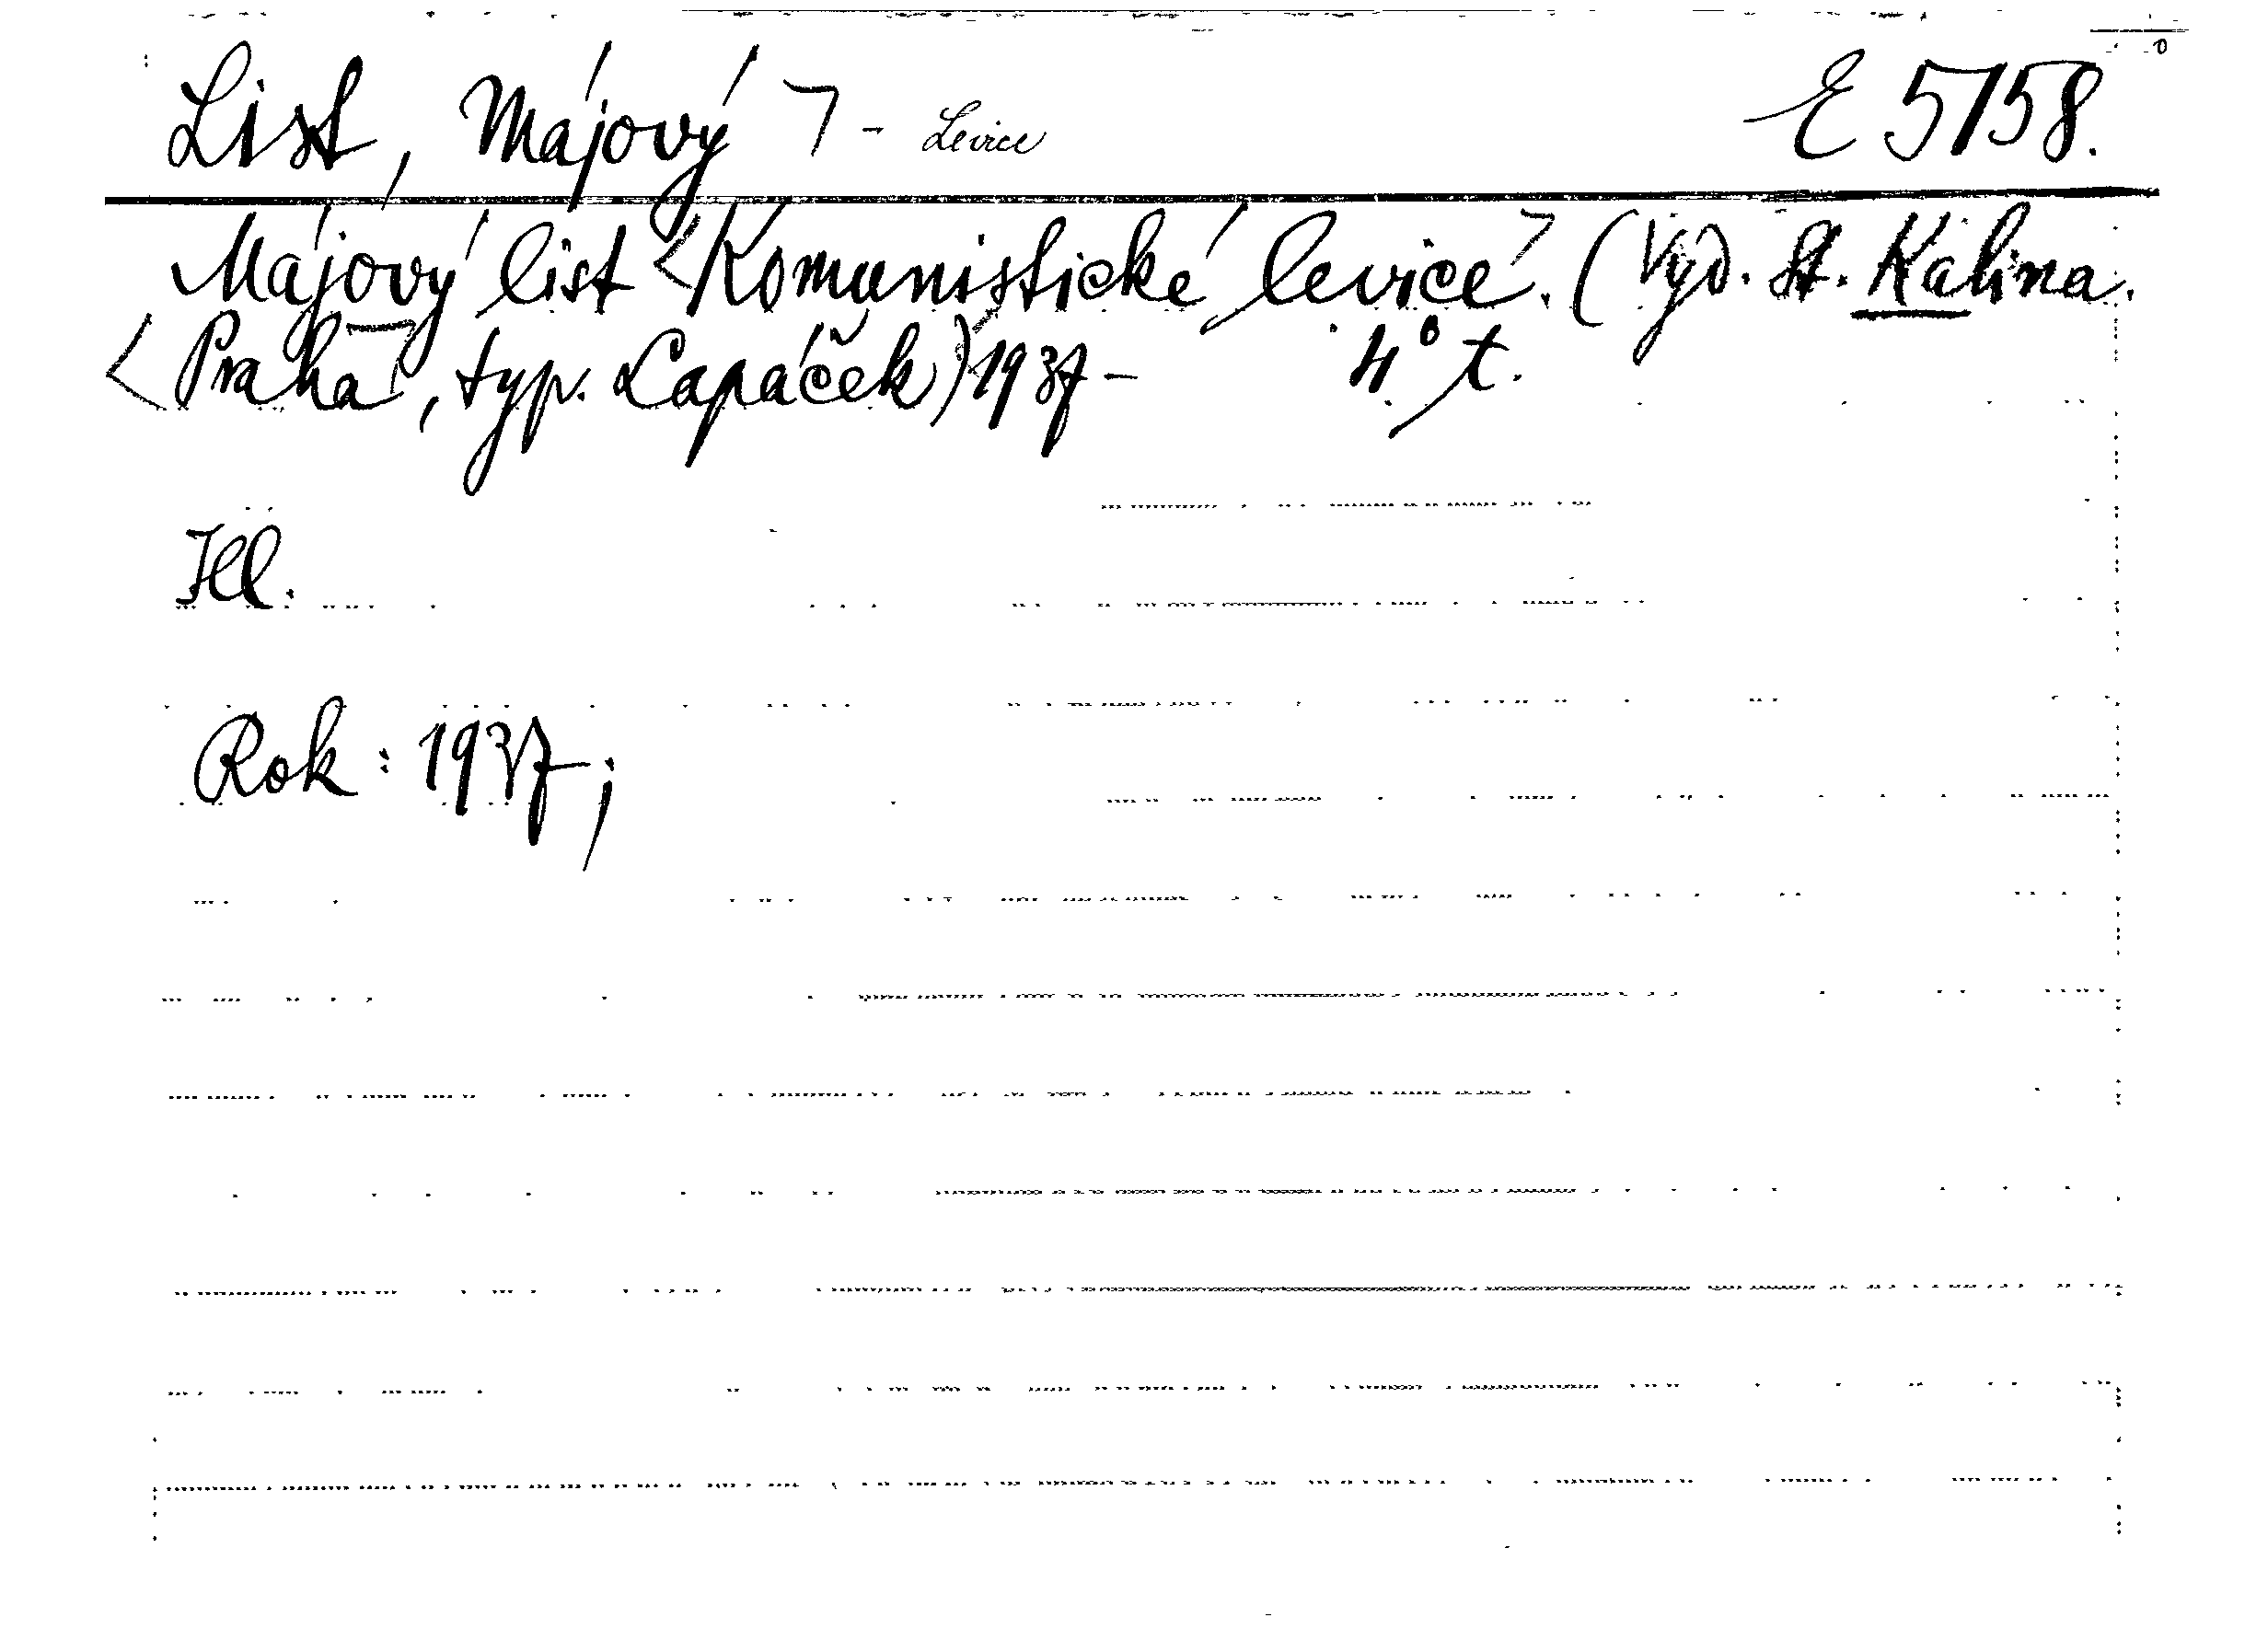 List, Májový ⌝ - Levice E 5158.
Májový list <Komunistické levice>. (Vyd. St. Kalina.
<Praha⌝, typ. Lapáček) 1937 - 4° t.
Ill.
Rok: 1937;